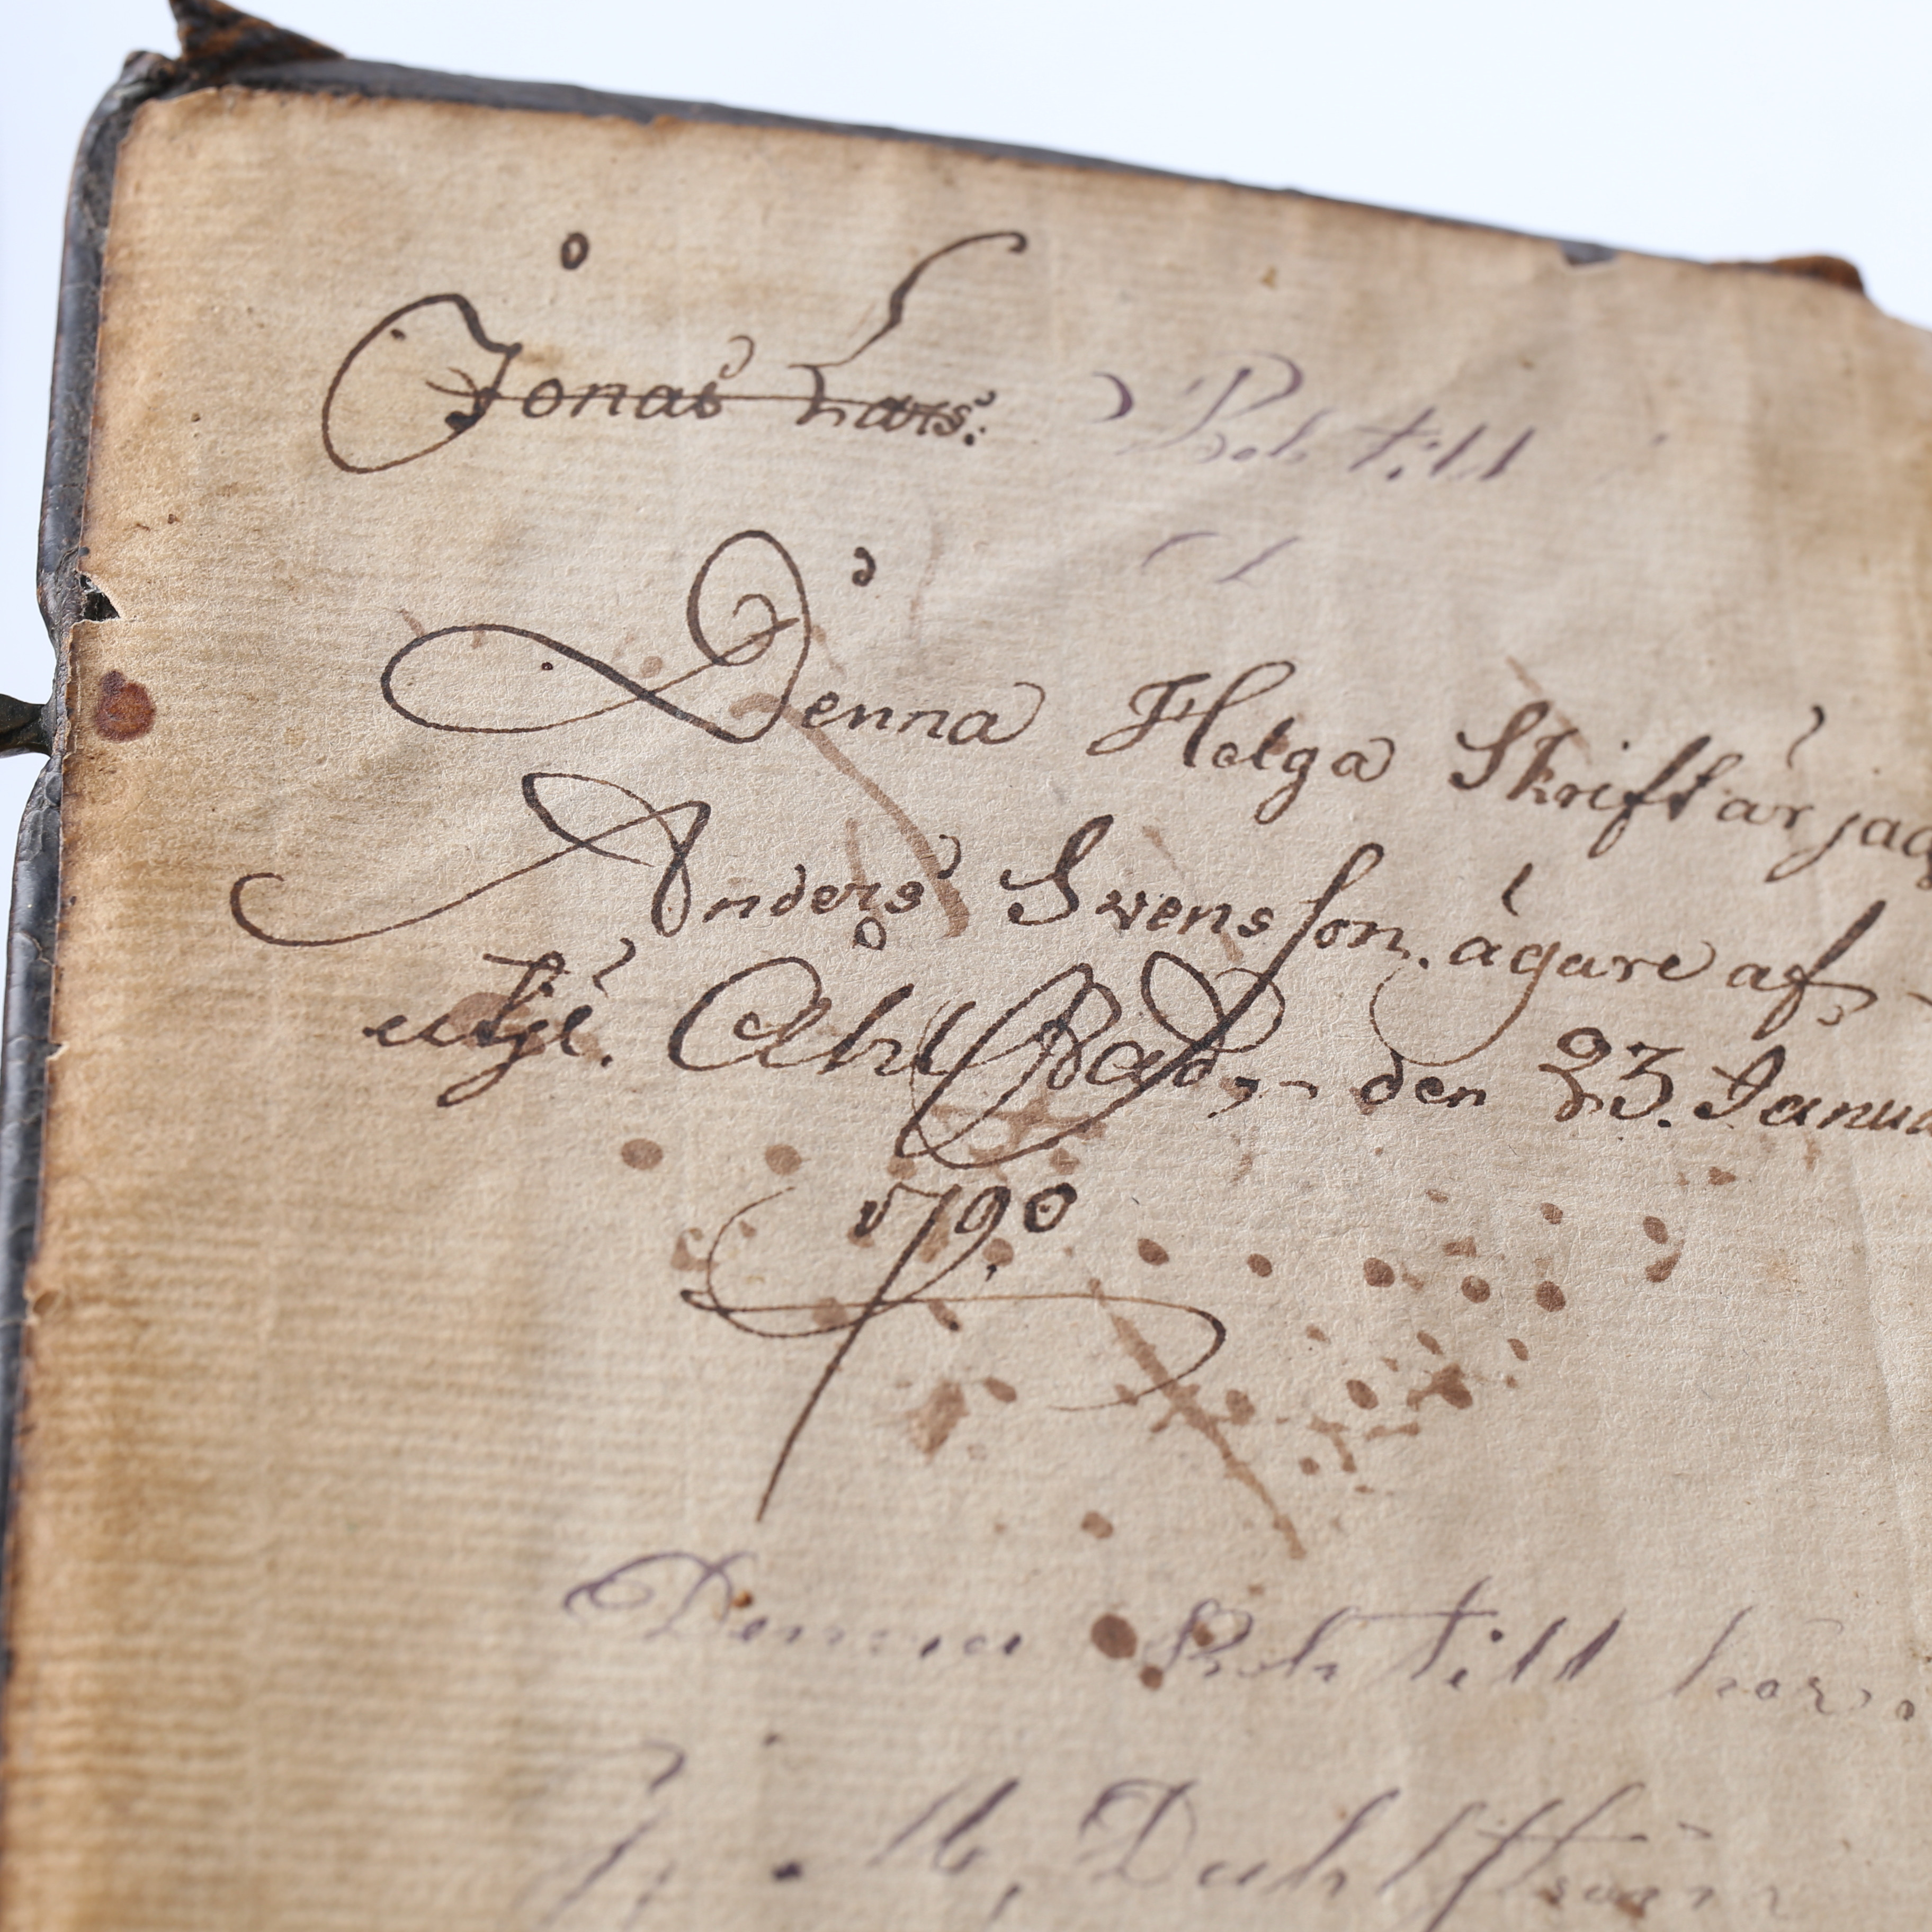 Jonas Lars: Bok till
Denna Helga Skrift är jag
Anders Svensson. ägare af
den 23. Janua
1790
Denna Bok till hör
J. M, Dahlström